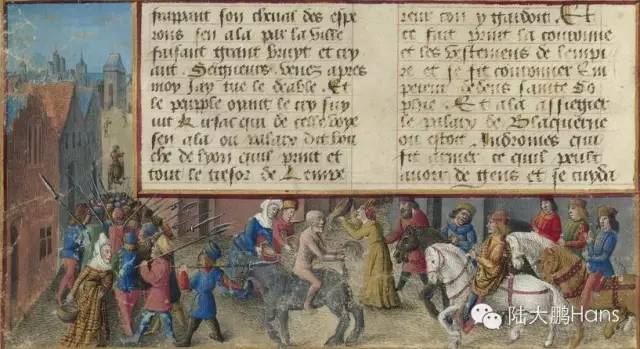 frappant son cheual des espe
rons sen ala par la ville
faisant grant bruyt et cry
ant. Seigneurs venez apres
moy Jay tue le deable. Et
le peuple oyant le cry suy
uit Kirsac qui de celle voye
sen ala ou palays dit bou
che de lyon quil print et
tout le tresor de Lempe
reur con y gardoit. Et
ce fait print la couronne
et les vestemens de lempi
re et se fit couronner Em
pereur dedens sainte So
phie. Et ala assiegier
le palays de Blaquerne
ou estoit Andromes qui
fit armer ce quil peult
auoir de gens et se cuyda
陆大鹏Hans